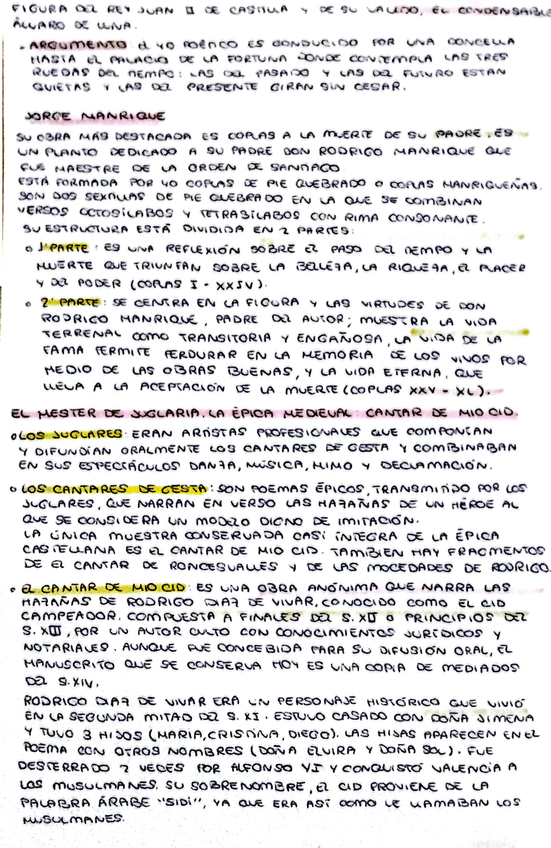 FIGURA DEL REY JUAN II DE CASTILLA Y DE SU VALIDO, EL CONDENSABLE
ÁLVARO DE LUNA.
- ARGUMENTO: EL YO POÉTICO ES CONDUCIDO POR UNA DONCELLA
HASTA EL PALACIO DE LA FORTUNA DONDE CONTEMPLA LAS TRES
RUEDAS DEL TIEMPO: LAS DEL PASADO Y LAS DEL FUTURO ESTÁN
QUIETAS Y LAS DEL PRESENTE GIRAN SIN CESAR.
JORGE MANRIQUE
SU OBRA MÁS DESTACADA ES COPLAS A LA MUERTE DE SU PADRE. ES
UN PLANTO DEDICADO A SU PADRE DON RODRIGO MANRIQUE QUE
FUE MAESTRE DE LA ORDEN DE SANTIAGO.
ESTÁ FORMADA POR 40 COPLAS DE PIE QUEBRADO O COPLAS MANRIQUEÑAS.
SON DOS SEXTILLAS DE PIE QUEBRADO EN LA QUE SE COMBINAN
VERSOS OCTOSÍLABOS Y TETRASÍLABOS CON RIMA CONSONANTE.
SU ESTRUCTURA ESTÁ DIVIDIDA EN 2 PARTES:
○ 1ª PARTE: ES UNA REFLEXIÓN SOBRE EL PASO DEL TIEMPO Y LA
MUERTE QUE TRIUNFAN SOBRE LA BELLEZA, LA RIQUEZA, EL PLACER
Y DEL PODER (COPLAS I - XXIV).
○ 2ª PARTE: SE CENTRA EN LA FIGURA Y LAS VIRTUDES DE DON
RODRIGO MANRIQUE, PADRE DEL AUTOR; MUESTRA LA VIDA
TERRENAL COMO TRANSITORIA Y ENGAÑOSA, LA VIDA DE LA
FAMA PERMITE PERDURAR EN LA MEMORIA DE LOS VIVOS POR
MEDIO DE LAS OBRAS BUENAS, Y LA VIDA ETERNA, QUE
LLEVA A LA ACEPTACIÓN DE LA MUERTE (COPLAS XXV - XL).
EL MESTER DE JUGLARIA. LA ÉPICA MEDIEVAL: CANTAR DE MIO CID.
○ LOS JUGLARES: ERAN ARTISTAS PROFESIONALES QUE COMPONÍAN
Y DIFUNDÍAN ORALMENTE LOS CANTARES DE GESTA Y COMBINABAN
EN SUS ESPECTÁCULOS DANZA, MÚSICA, MIMO Y DECLAMACIÓN.
○ LOS CANTARES DE GESTA: SON POEMAS ÉPICOS, TRANSMITIDO POR LOS
JUGLARES, QUE NARRAN EN VERSO LAS HAZAÑAS DE UN HÉROE AL
QUE SE CONSIDERA UN MODELO DIGNO DE IMITACIÓN.
LA ÚNICA MUESTRA CONSERVADA CASI ÍNTEGRA DE LA ÉPICA
CASTELLANA ES EL CANTAR DE MIO CID. TAMBIEN HAY FRAGMENTOS
DE EL CANTAR DE RONCESVALLES Y DE LAS MOCEDADES DE RODRIGO.
○ EL CANTAR DE MIO CID: ES UNA OBRA ANÓNIMA QUE NARRA LAS
HAZAÑAS DE RODRIGO DIAZ DE VIVAR, CONOCIDO COMO EL CID
CAMPEADOR. COMPUESTA A FINALES DEL S. XII O PRINCIPIOS DEL
S. XIII, POR UN AUTOR CULTO CON CONOCIMIENTOS JURÍDICOS Y
NOTARIALES. AUNQUE FUE CONCEBIDA PARA SU DIFUSIÓN ORAL, EL
MANUSCRITO QUE SE CONSERVA HOY ES UNA COPIA DE MEDIADOS
DEL S. XIV.
RODRIGO DIAZ DE VIVAR ERA UN PERSONAJE HISTÓRICO QUE VIVIÓ
EN LA SEGUNDA MITAD DEL S. XI. ESTUVO CASADO CON DOÑA JIMENA
Y TUVO 3 HIJOS (MARIA, CRISTINA, DIEGO). LAS HIJAS APARECEN EN EL
POEMA CON OTROS NOMBRES (DOÑA ELVIRA Y DOÑA SOL). FUE
DESTERRADO 2 VECES POR ALFONSO VI Y CONQUISTÓ VALENCIA A
LOS MUSULMANES. SU SOBRENOMBRE, EL CID PROVIENE DE LA
PALABRA ÁRABE "SIDI", YA QUE ERA ASÍ COMO LE LLAMABAN LOS
MUSULMANES.